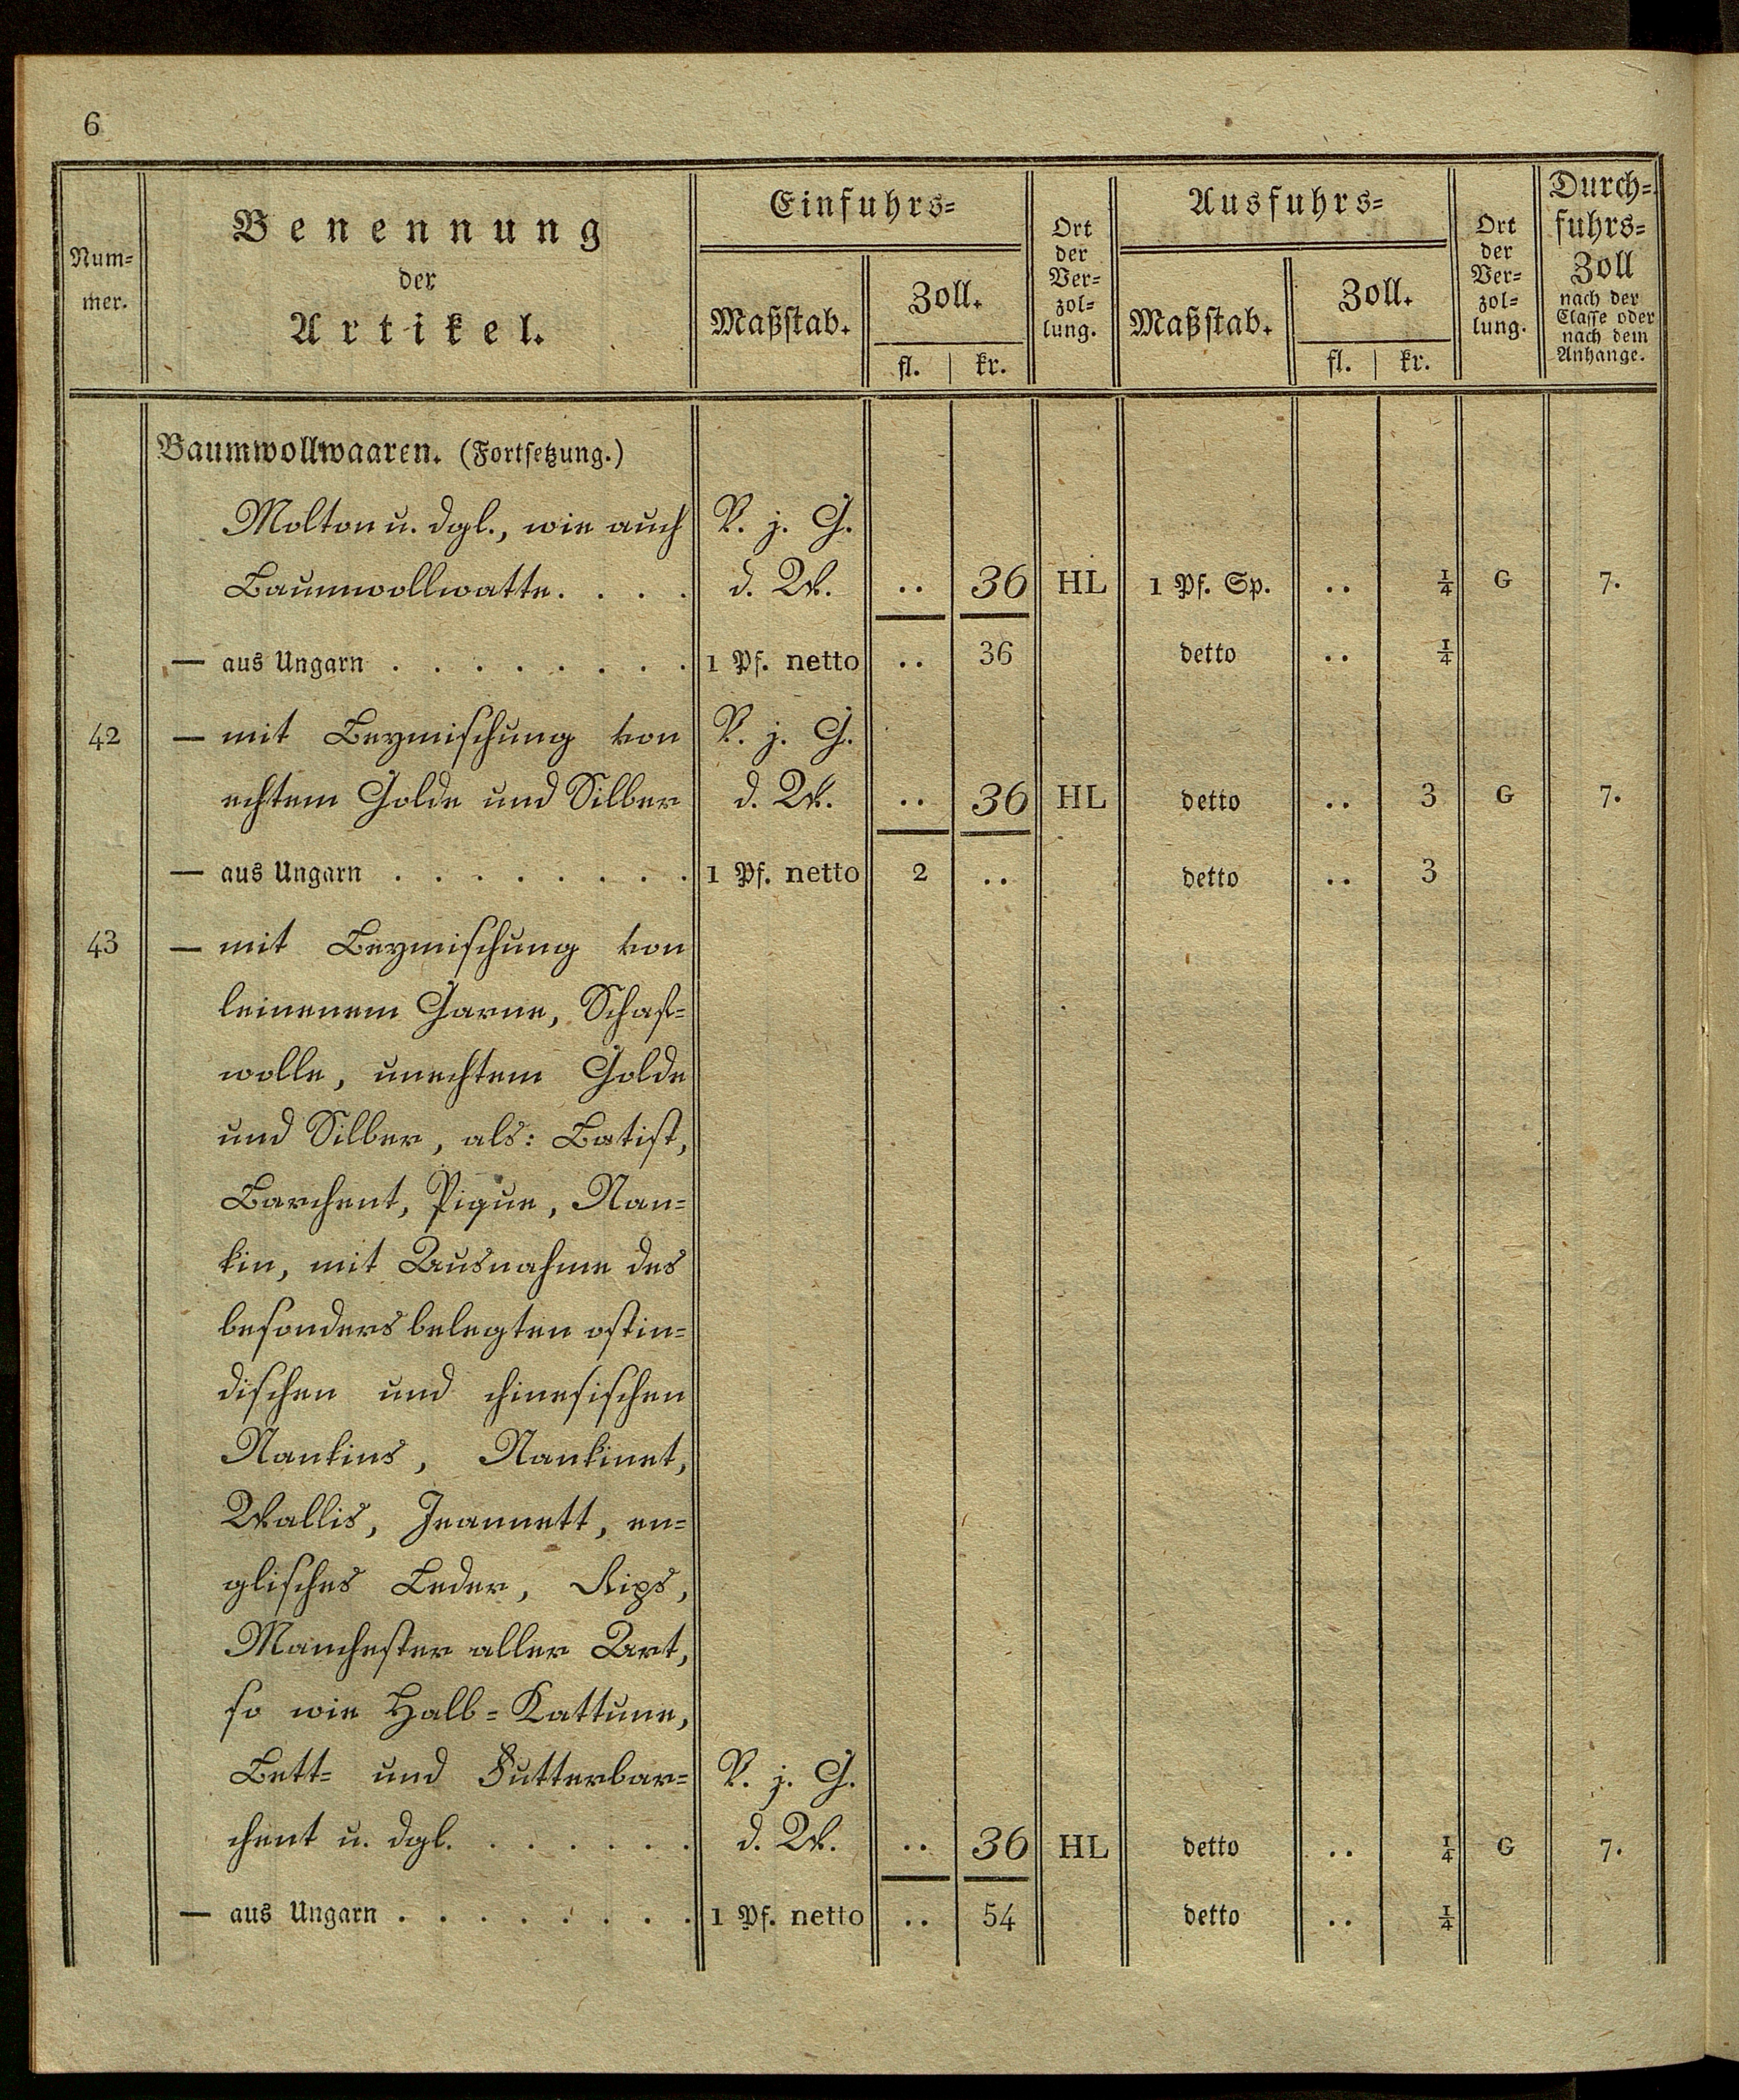 6
Num-
mer.
Benennung
der
Artikel.
Einfuhrs-
Maßstab.
Zoll.
fl. | kr.
Ort
der
Ver-
zol-
lung.
Ausfuhrs-
Maßstab.
Zoll.
fl. | kr.
Ort
der
Ver-
zol-
lung.
Durch-
fuhrs-
Zoll
nach der
Classe oder
nach dem
Anhange.
Baumwollwaaren. (Fortsetzung.)
Molton u. dgl., wie auch V. j. G.
Baumwollwatte. . . . d. W. .. 36 HL 1 Pf. Sp. .. 1/4 G 7.
— aus Ungarn . . . . . . . . 1 Pf. netto .. 36 detto .. 1/4
42 — mit Beymischung von V. j. G.
echtem Golde und Silber d. W. .. 36 HL detto .. 3 G 7.
— aus Ungarn . . . . . . . . 1 Pf. netto 2 .. detto .. 3
43 — mit Beymischung von
leinenem Garne, Schaf-
wolle, unechtem Golde
und Silber, als: Batist,
Barchent, Pique, Nan-
kin, mit Ausnahme des
besonders belegten ostin-
dischen und chinesischen
Nankins, Nankinet,
Wallis, Jeannett, en-
glisches Leder, Rips,
Manchester aller Art,
so wie Halb-Kattune,
Bett- und Futterbar- V. j. G.
chent u. dgl. . . . . . . d. W. .. 36 HL detto .. 1/4 G 7.
— aus Ungarn . . . . . . . . 1 Pf. netto .. 54 detto .. 1/4